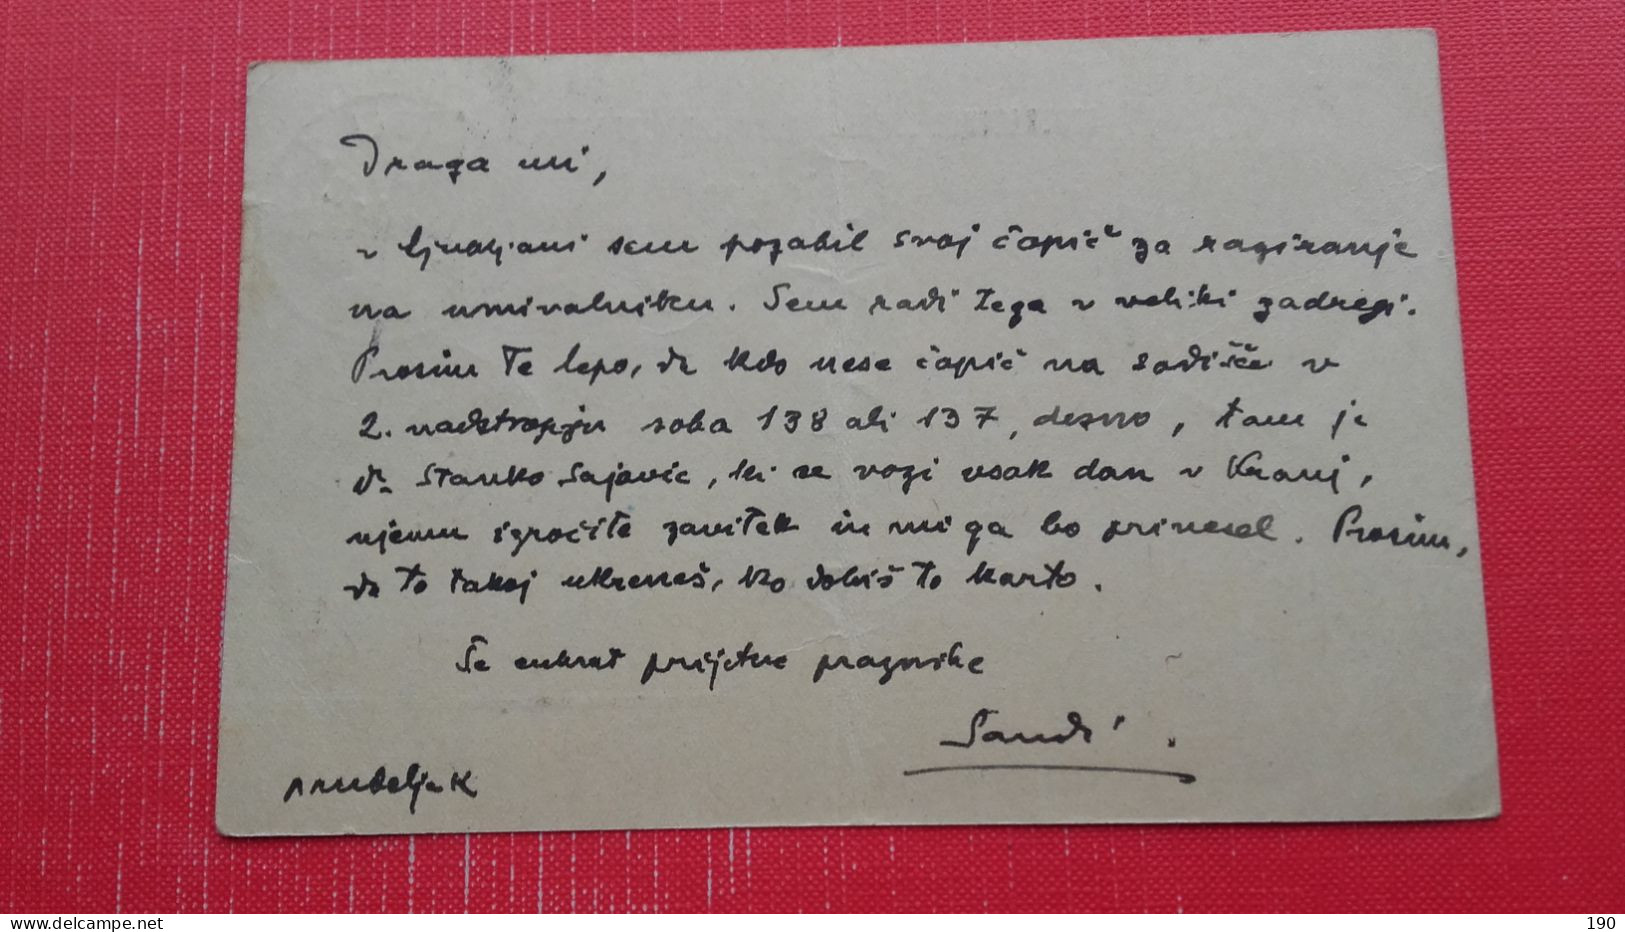 Draga mi,
v Ljubljani sem pozabil svoj čopič za raziranje
na umivalniku. Sem radi tega v veliki zadregi.
Prosim Te lepo, da kdo nese čopič na sodišče v
2. nadstropju soba 138 ali 137, desno, tam je
dr. Stanko Sajovic, ki se vozi vsak dan v Kranj,
njemu izročite zavitek in mi ga bo prinesel. Prosim,
da to takoj ukreneš, ko dobiš to karto.
Še enkrat prijetne praznike
Sandi.
ponedeljek
delcampe.net
190